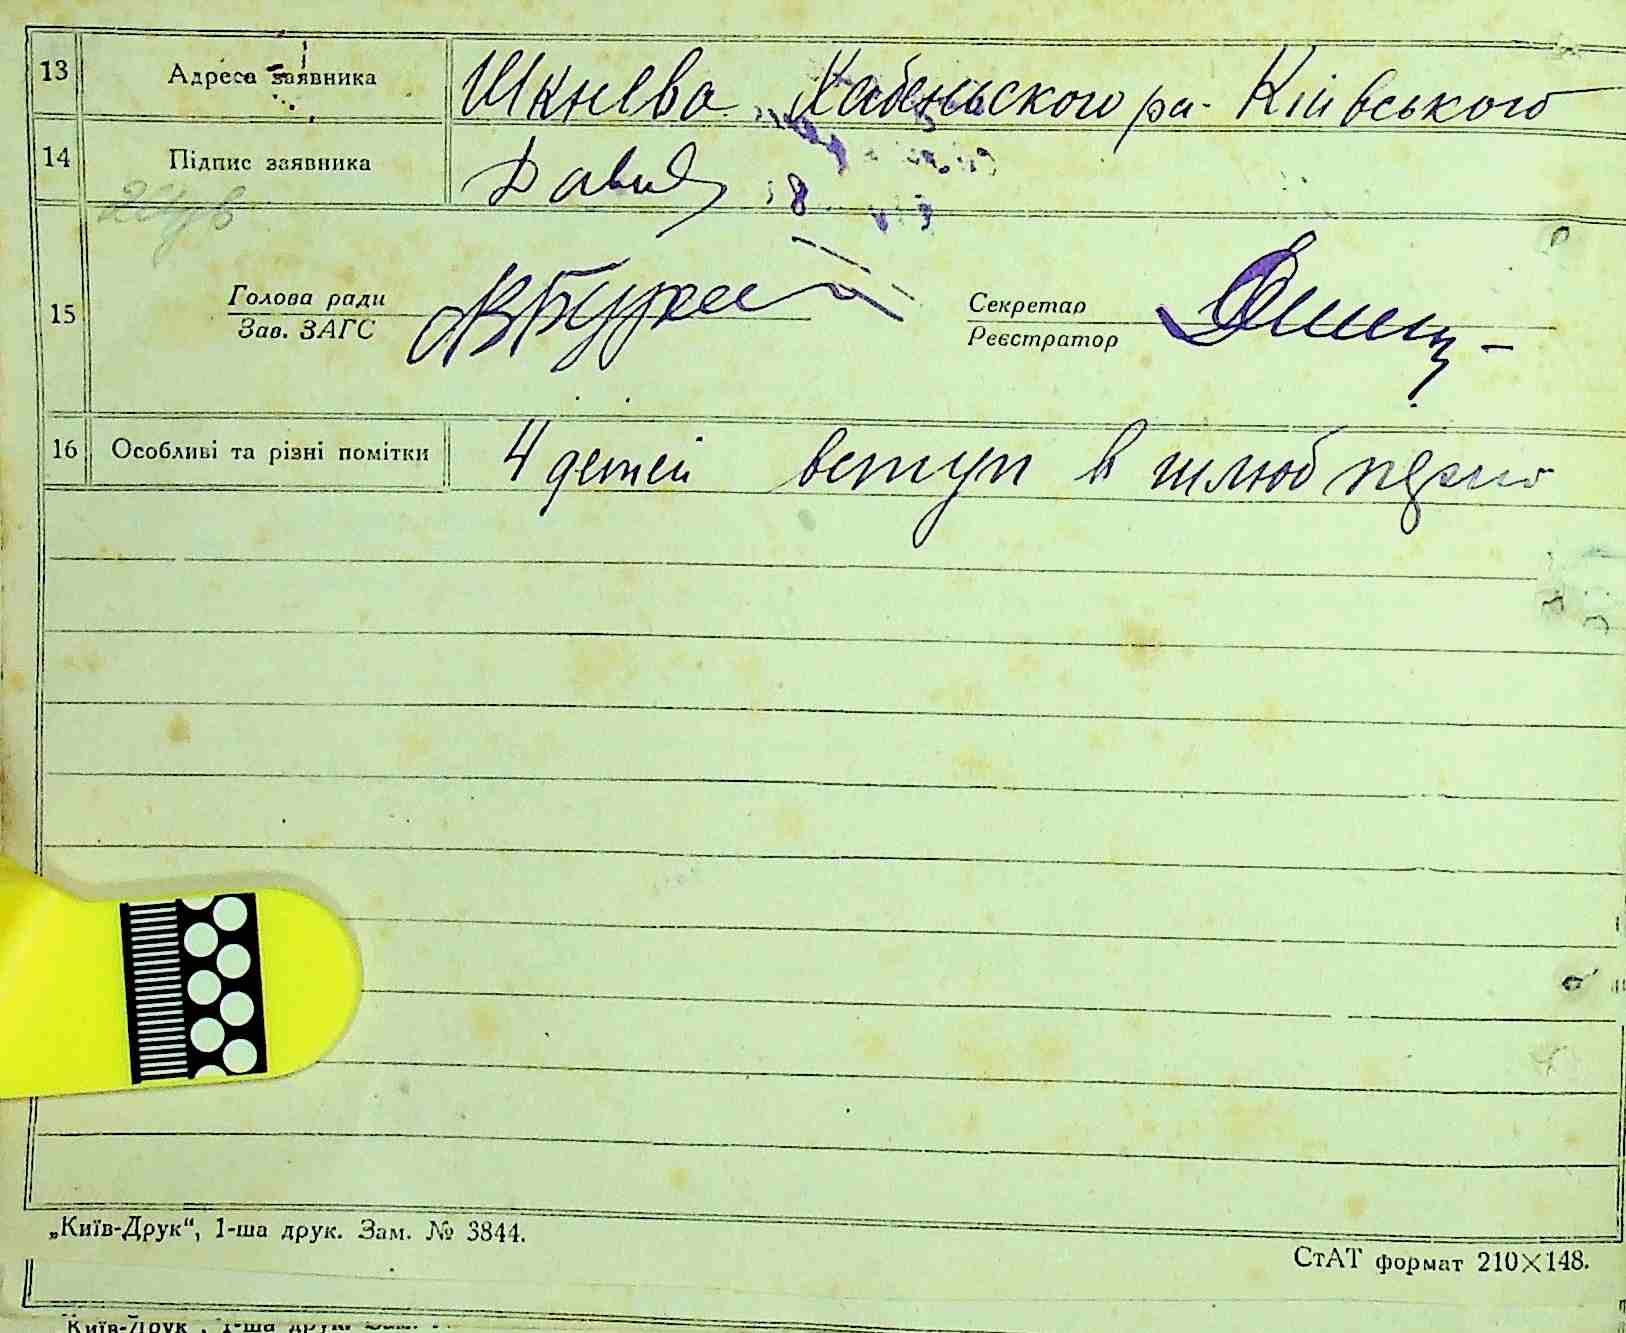 13 Адреса заявника Шкнева Хабеньского ра- Кіівського
14 Підпис заявника Давид
15 Голова ради Секретар
Зав. ЗАГС Реєстратор
16 Особливі та різні помітки 4 детей вступ в шлюб
„Київ-Друк“, 1-ша друк. Зам. № 3844.
СтАТ формат 210×148.